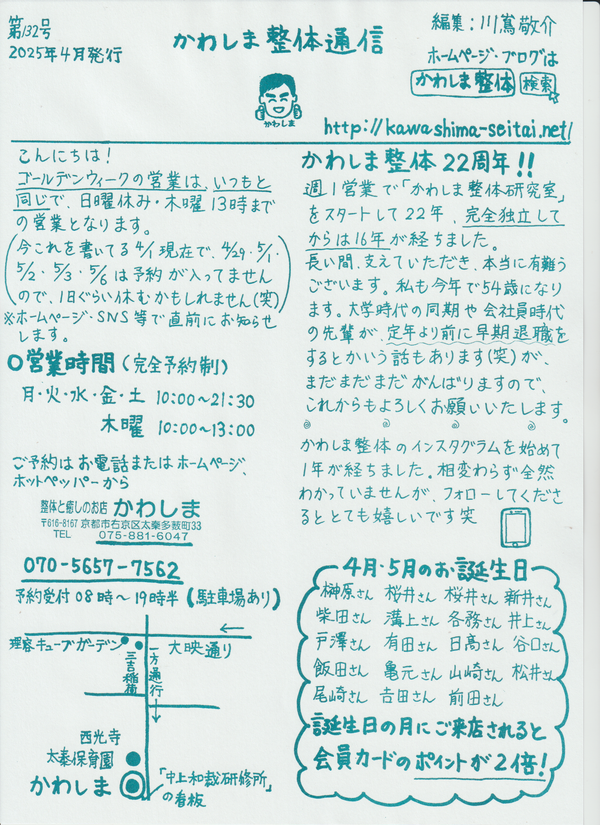 第132号
2025年4月発行
かわしま整体通信
かわしま
編集：川嶌敬介
ホームページ・ブログは
かわしま整体 検索
http://kawashima-seitai.net/
こんにちは！
ゴールデンウィークの営業は、いつもと
同じで、日曜休み・木曜13時まで
の営業となります。
(今これを書いてる4/1現在で、4/29・5/1・
5/2・5/3・5/6は予約が入ってません
ので、1日ぐらい休むかもしれません(笑))
※ホームページ・SNS等で直前にお知らせ
します。
○営業時間(完全予約制)
月・火・水・金・土 10:00〜21:30
木曜 10:00〜13:00
ご予約はお電話またはホームページ、
ホットペッパーから
整体と癒しのお店 かわしま
〒616-8167 京都市右京区太秦多薮町33
TEL 075-881-6047
070-5657-7562
予約受付08時〜19時半(駐車場あり)
理容キューブガーデン
三吉稲荷
一方通行
大映通り
西光寺
太秦保育園
かわしま
「中上和裁研修所」
の看板
かわしま整体22周年!!
週1営業で「かわしま整体研究室」
をスタートして22年、完全独立して
からは16年が経ちました。
長い間、支えていただき、本当に有難う
ございます。私も今年で54歳になり
ます。大学時代の同期や会社員時代
の先輩が、定年より前に早期退職を
するとかいう話もあります(笑)が、
まだまだまだがんばりますので、
これからもよろしくお願いいたします。
かわしま整体のインスタグラムを始めて
1年が経ちました。相変わらず全然
わかっていませんが、フォローしてくださ
るととても嬉しいです笑
4月・5月のお誕生日
榊原さん 桜井さん 桜井さん 新井さん
柴田さん 溝上さん 各務さん 井上さん
戸澤さん 有田さん 日髙さん 谷口さん
飯田さん 亀元さん 山崎さん 松井さん
尾崎さん 吉田さん 前田さん
誕生日の月にご来店されると
会員カードのポイントが2倍！